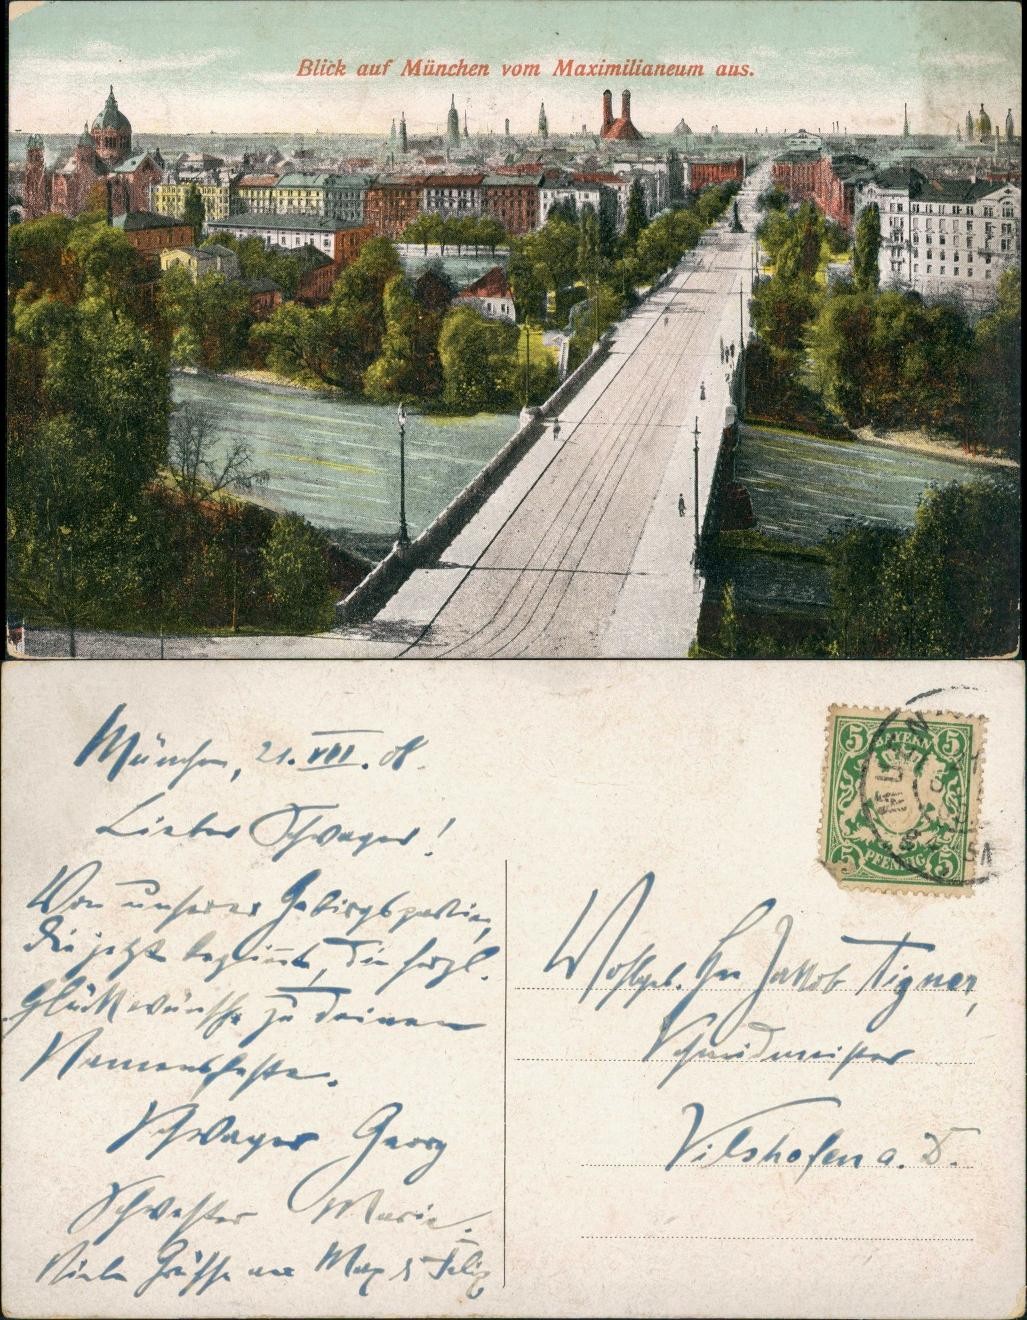 Blick auf München vom Maximilianeum aus.
München, 21. VII. 08.
Lieber Schwager!
Von unserer Gebirgspartie,
die jetzt beginnt, die herzl.
Glückwünsche zu deinem
Namensfeste.
Schwager Georg
Schwester Marie.
Viele Grüsse an Max & Felix
5 BAYERN 5
5 PFENNIG 5
Wohlgeb. Hrn Jakob Aigner,
Schmidmeister
Vilshofen a. D.